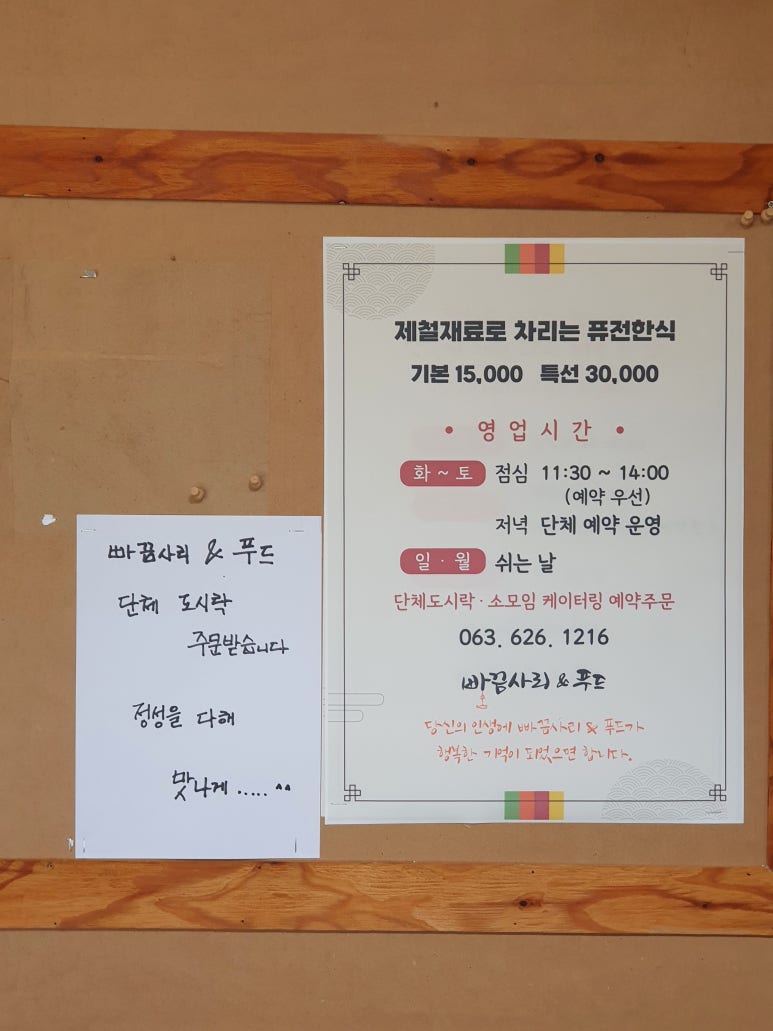 빠끔사리 & 푸드
단체 도시락
주문받습니다
정성을 다해
맛나게..... ^^
제철재료로 차리는 퓨전한식
기본 15,000 특선 30,000
• 영업시간 •
화 ~ 토 점심 11:30 ~ 14:00
(예약 우선)
저녁 단체 예약 운영
일 · 월 쉬는 날
단체도시락 · 소모임 케이터링 예약주문
063. 626. 1216
빠끔사리 & 푸드
당신의 인생에 빠끔사리 & 푸드가
행복한 기억이 되었으면 합니다.